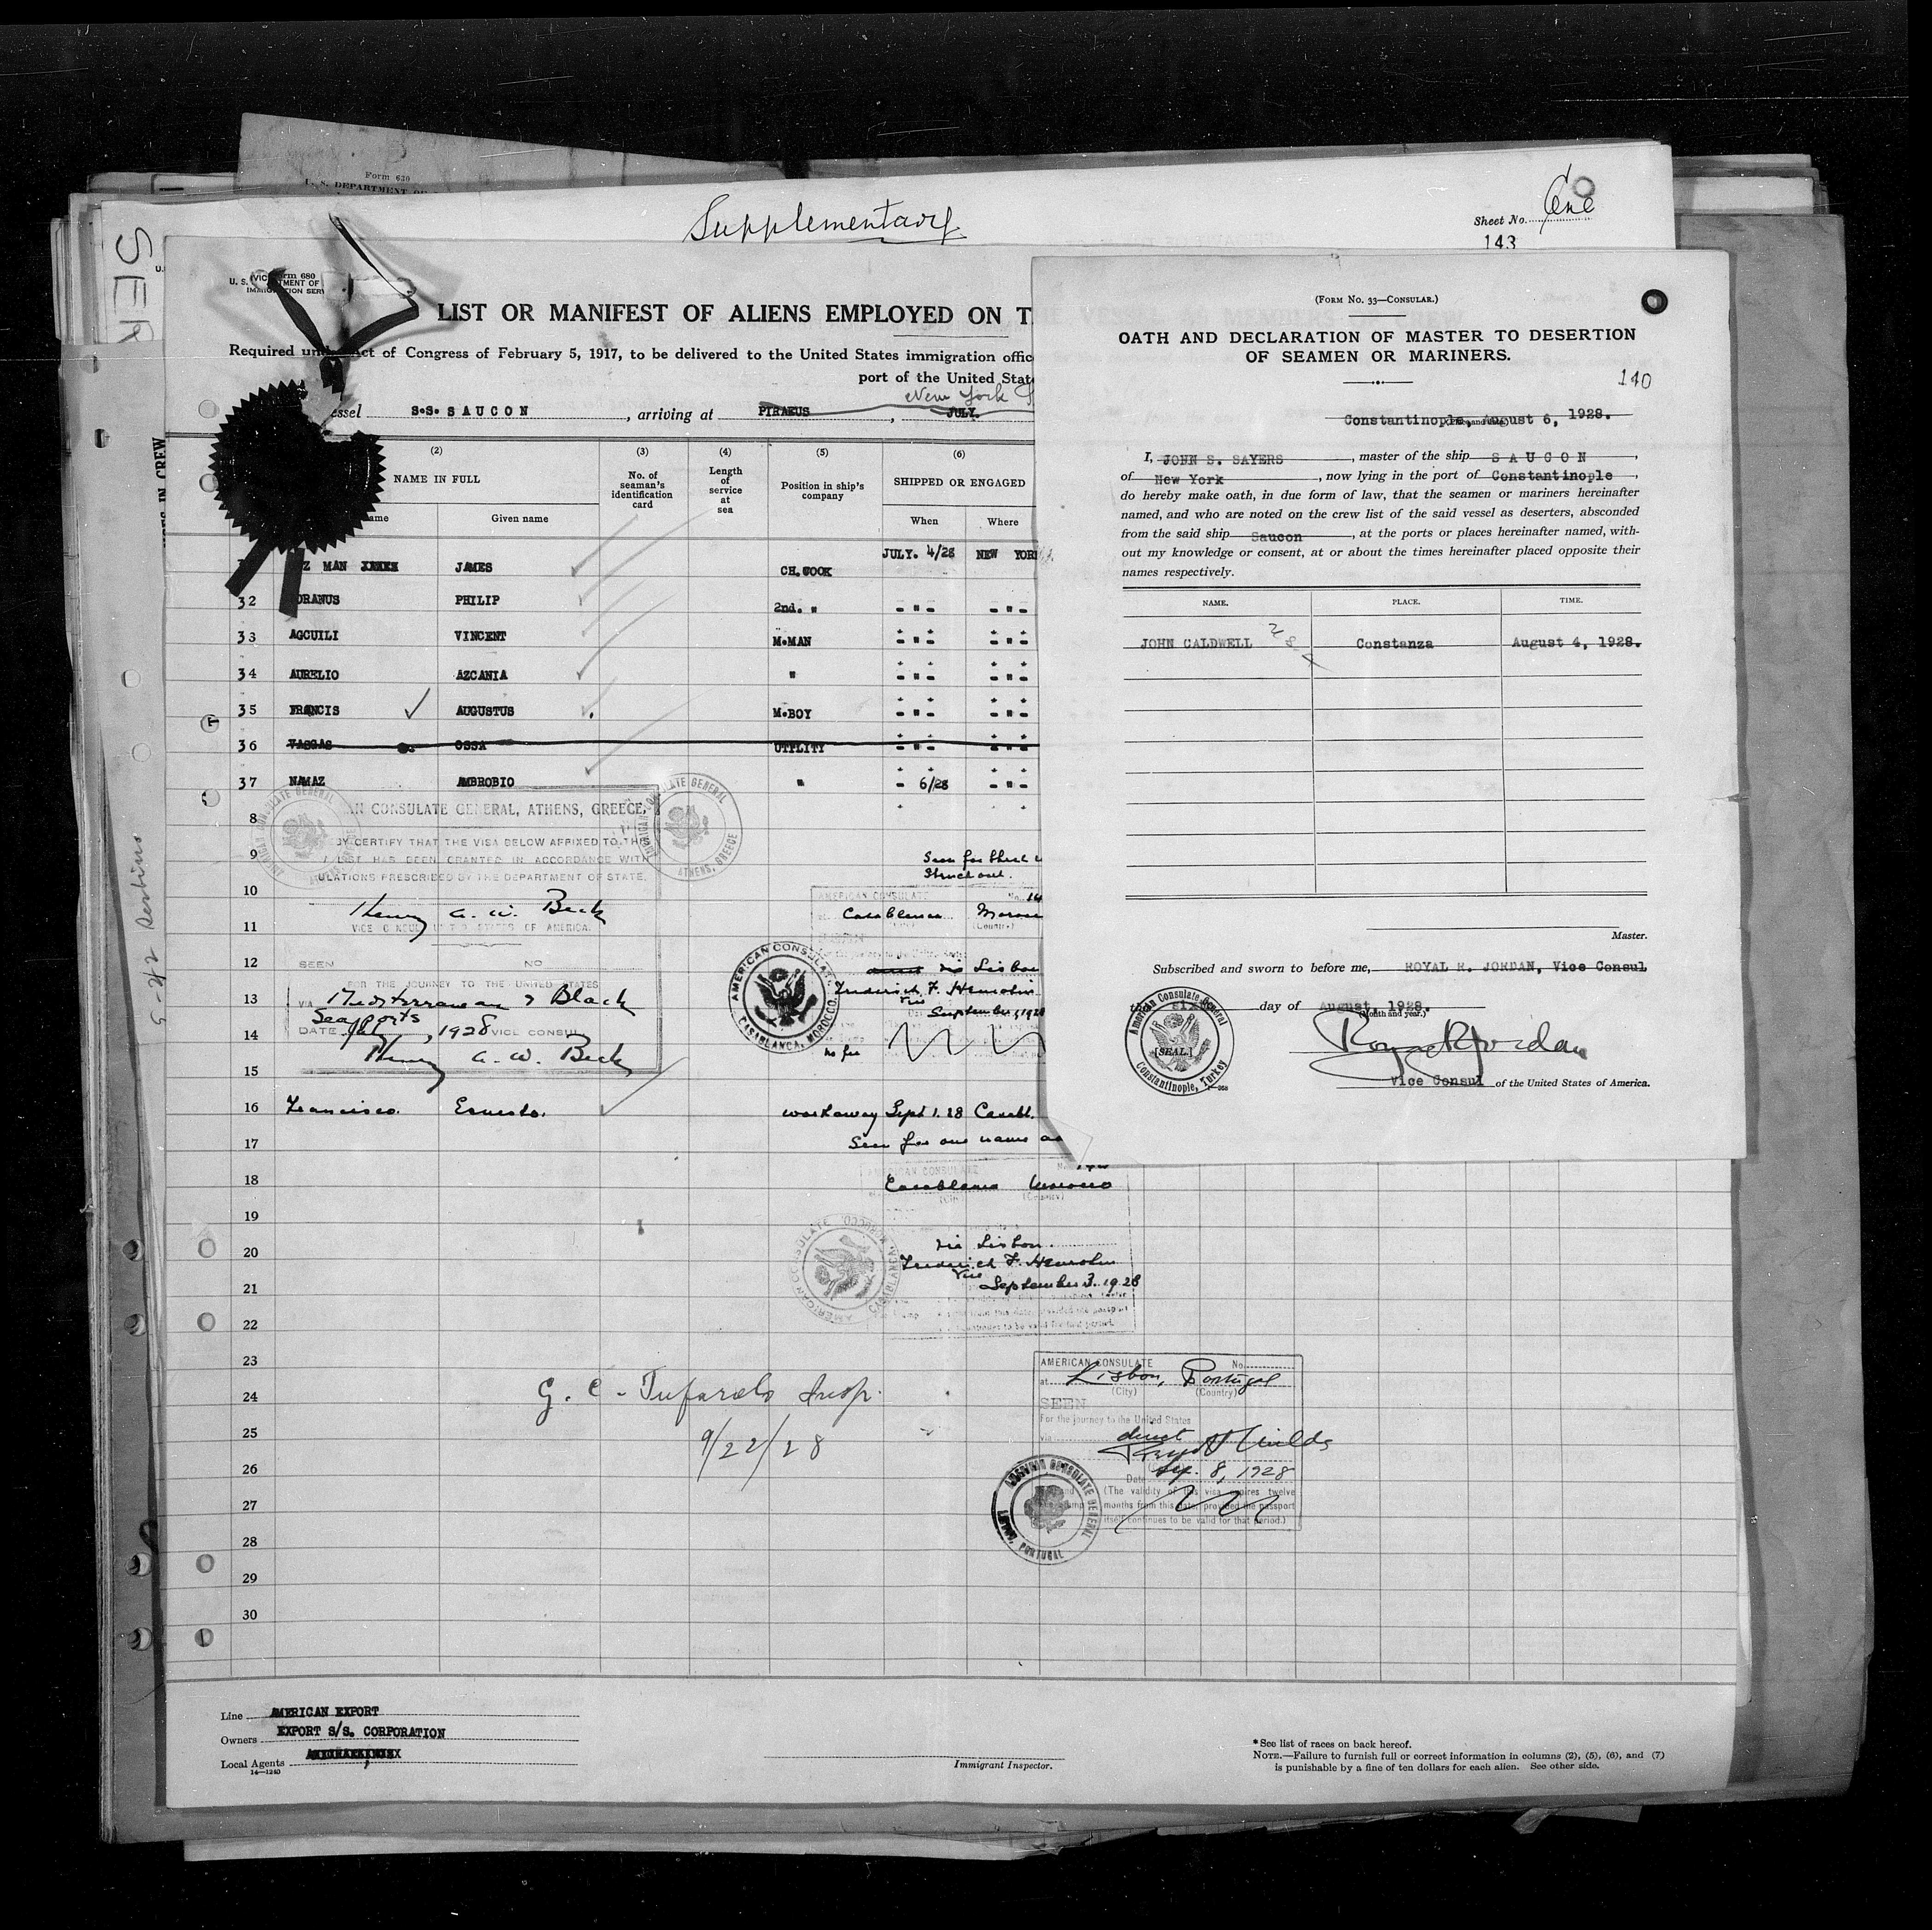 Form 630
U. S. DEPARTMENT OF
Supplementary
Sheet No. One
143
SER
Form 680
U. S.
IMMIGRATION SERV
LIST OR MANIFEST OF ALIENS EMPLOYED ON T
Required under Act of Congress of February 5, 1917, to be delivered to the United States immigration offic
port of the United Stat
New York
essel S.S. SAUCON, arriving at PIRAEUS, JULY.
(2) (3) (4) (5) (6)
NAME IN FULL
No. of seaman's identification card
Length of service at sea
Position in ship's company
SHIPPED OR ENGAGED
ame Given name When Where
JULY. 4/28 NEW YORK
Z MAN JAMES CH.COOK
32 ORANUS PHILIP 2nd. " - " - - " -
33 AGCUILI VINCENT M.MAN - " - - " -
34 AURELIO AZCANIA " - " - - " -
35 FRANCIS AUGUSTUS M.BOY - " - - " -
36 VASGAS OSSA UTILITY - " - - " -
37 NAMAZ AMBROBIO " - 6/28 - " -
8
AN CONSULATE GENERAL, ATHENS, GREECE.
BY CERTIFY THAT THE VISA BELOW AFFIXED TO THIS
LIST HAS BEEN GRANTED IN ACCORDANCE WITH
ULATIONS PRESCRIBED BY THE DEPARTMENT OF STATE.
Henry A. W. Beck
VICE CONSUL OF THE UNITED STATES OF AMERICA.
SEEN NO
FOR THE JOURNEY TO THE UNITED STATES
VIA Mediterranean & Black
Seaports
DATE July, 1928 VICE CONSUL
Henry A. W. Beck
AMERICAN CONSULATE GENERAL
ATHENS, GREECE
9
10
11
12
13
14
15
Seen for
Struck out.
AMERICAN CONSULATE
Casablanca Moroc
(Country)
via Lisbon
Frederick F. Henrotin
Vice
September, 1928
no fee
AMERICAN CONSULATE
CASABLANCA, MOROCCO.
16 Francisco. Ernesto. workaway Sept 1. 28 Casabl.
17 Seen for one name
18
AMERICAN CONSULATE
Casablanca Morocco
(City) (Country)
19
20
21
22
via Lisbon.
Frederick F. Henrotin
Vice
September 3. 1928
AMERICAN CONSULATE
CASABLANCA, MOROCCO.
23
24
25
26
27
28
29
30
G. C. Tufarolo Insp.
9/22/28
AMERICAN CONSULATE No.
at Lisbon, Portugal
(City) (Country)
SEEN
For the journey to the United States
via direct
Date Sep. 8, 1928
(The validity of this visa expires twelve
months from this date, provided the passport
itself continues to be valid for that period.)
AMERICAN CONSULATE GENERAL
LISBON, PORTUGAL
Line AMERICAN EXPORT
Owners EXPORT S/S. CORPORATION
Local Agents
14—1240
Immigrant Inspector.
*See list of races on back hereof.
NOTE.—Failure to furnish full or correct information in columns (2), (5), (6), and (7)
is punishable by a fine of ten dollars for each alien. See other side.
(FORM NO. 33—CONSULAR.)
OATH AND DECLARATION OF MASTER TO DESERTION
OF SEAMEN OR MARINERS.
140
Constantinople, August 6, 1928.
I, JOHN S. SAYERS, master of the ship SAUCON,
of New York, now lying in the port of Constantinople,
do hereby make oath, in due form of law, that the seamen or mariners hereinafter
named, and who are noted on the crew list of the said vessel as deserters, absconded
from the said ship Saucon, at the ports or places hereinafter named, with-
out my knowledge or consent, at or about the times hereinafter placed opposite their
names respectively.
NAME. PLACE. TIME.
JOHN CALDWELL Constanza August 4, 1928.
Master.
Subscribed and sworn to before me, ROYAL R. JORDAN, Vice Consul
this sixth day of August, 1928.
(Month and year.)
Royal R Jordan
Vice Consul of the United States of America.
American Consulate General
[SEAL.]
Constantinople, Turkey